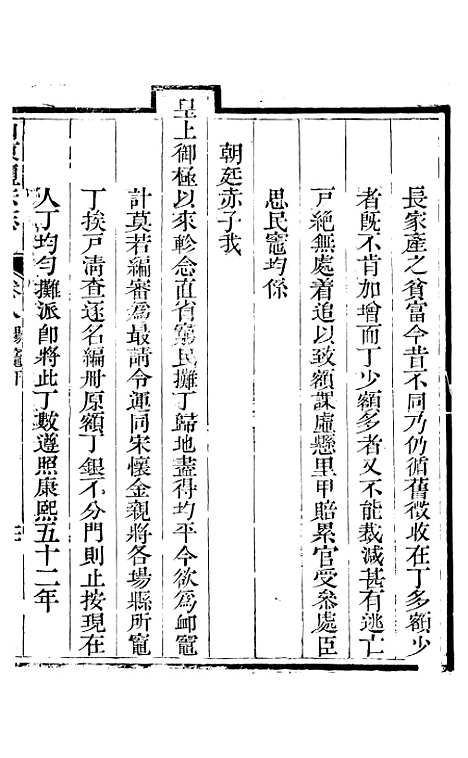 長家產之貧富今昔不同乃仍循舊徵收在丁多額少
者旣不肯加增而丁少額多者又不能裁減甚有逃亡
戸絶無處着追以致額課虛懸里甲賠累官受叅處臣
思民竈均係
朝廷赤子我
皇上御極以來軫念直省窮民攤丁歸地盡得均平今欲爲衈竈
計莫若編審爲最請令運同宋懷金親將各場縣所竈
丁挨戸淸查逐名編冊原額丁銀不分門則止按現在
人丁均勻攤派卽將此丁數遵照康熙五十二年
山東鹽法志 卷八 場竈下